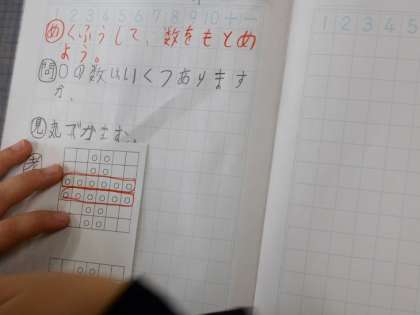 1 2 3 4 5 6 7 8 9 10 十一
1 2 3 4 5
め くふうして、数をもとめ
よう。
問 〇の数はいくつあります
か。
見 丸